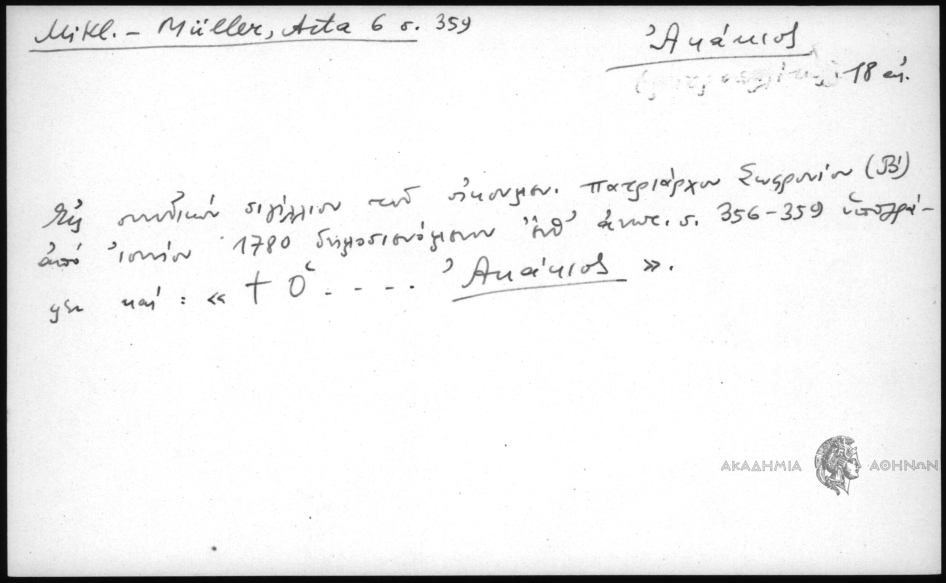 Mikl. – Müller, Acta 6 σ. 359
Ἀκάκιος
18 αἰ.
Εἰς συνοδικόν σιγίλλιον τοῦ οἰκουμεν. πατριάρχου Σωφρονίου (Β')
ἀπό ἰουνίου 1780 δημοσιευόμενον ἔνθ' ἀνωτ. σ. 356–359 ὑπογρά-
φει καί : « † Ὁ . . . . Ἀκάκιος ».
ΑΚΑΔΗΜΙΑ ΑΘΗΝΩΝ